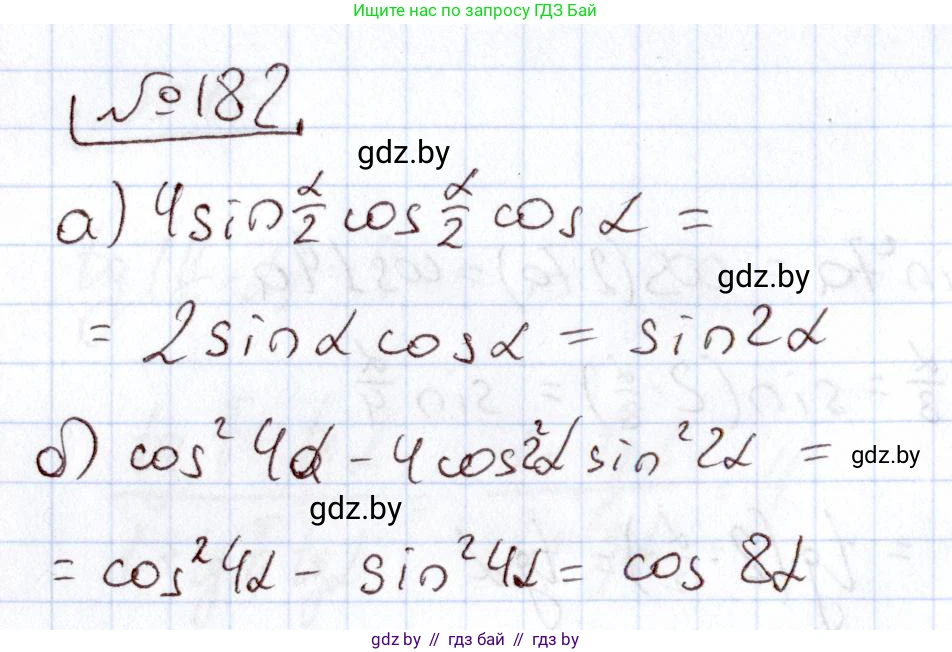 Ищите нас по запросу ГДЗ Бай
№182.
gdz.by
а) 4sin α/2 cos α/2 cos α =
gdz.by
= 2sin α cos α = sin 2α
б) cos² 4α - 4cos² 2α sin² 2α =
gdz.by
gdz.by
= cos² 4α - sin² 4α = cos 8α
gdz.by // гдз бай // гдз by